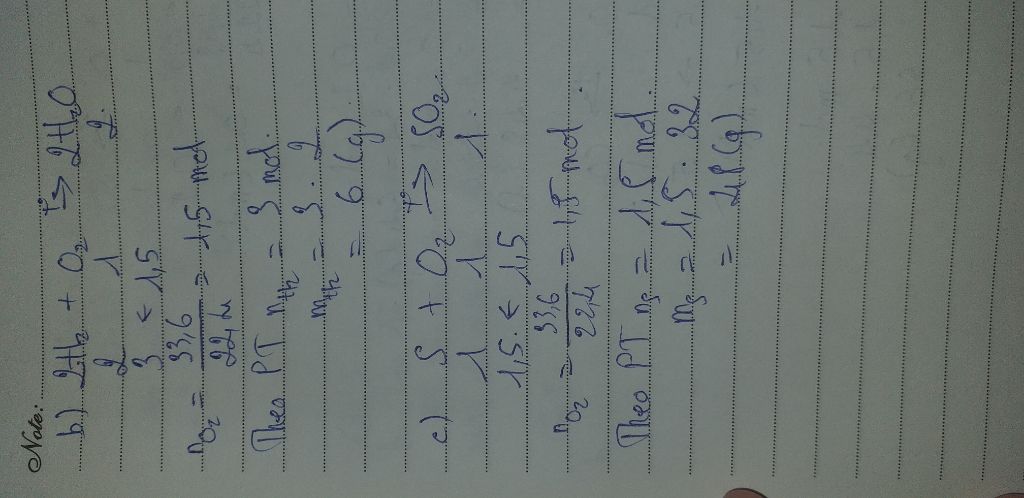 Note:
b.) 2H₂ + O₂ t°→ 2H₂O
2 1 2.
3 ← 1,5
nO₂ = 33,6 / 22,4 = 1,5 mol
Theo PT nH₂ = 3 mol.
mH₂ = 3 . 2
= 6 (g).
c) S + O₂ t°→ SO₂.
1 1 1.
1,5. ← 1,5
nO₂ = 33,6 / 22,4 = 1,5 mol.
Theo PT nS = 1,5 mol.
mS = 1,5 . 32
= 48 (g)